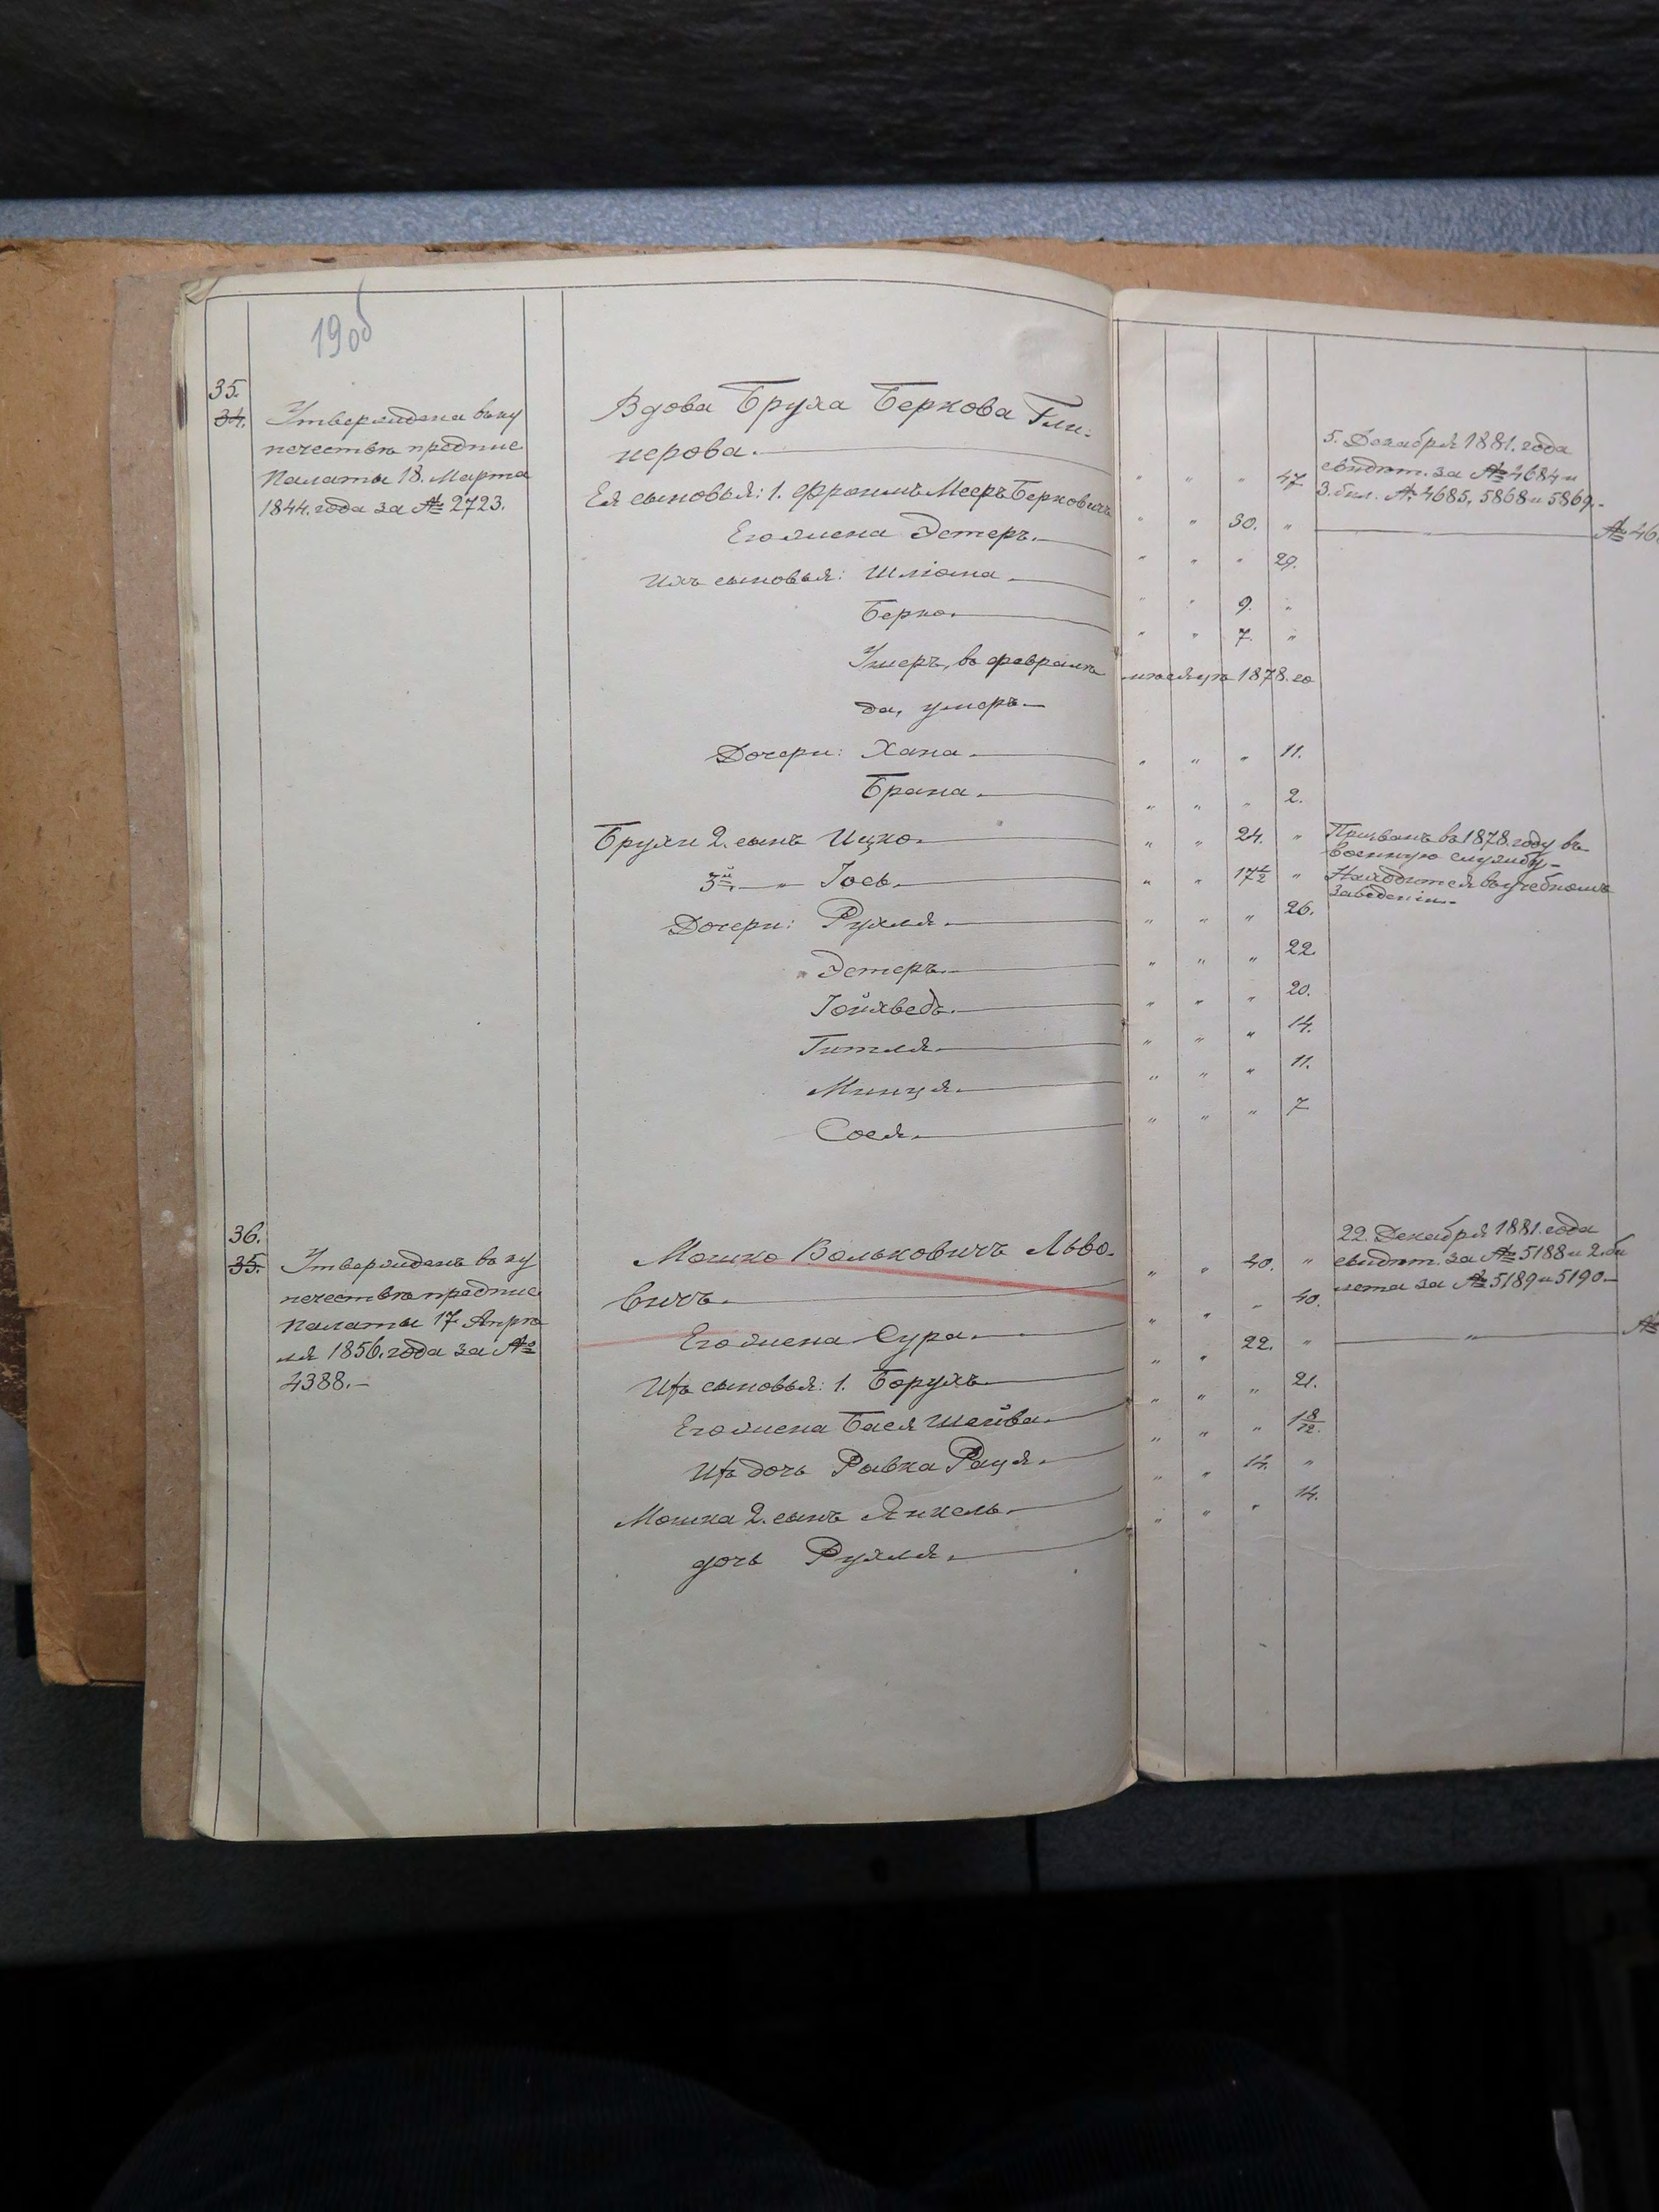 19об
35.
34.
Утверждена въ ку
печествѣ предпис
Палаты 18. Марта
1844. года за № 2723.
Вдова Бруха Беркова Гли-
нерова.
Ея сыновья: 1. Фроимъ Мееръ Берковичъ
Его жена Эстеръ.
Ихъ сыновья: Шлiома
Берко.
Умеръ, въ февралѣ мѣсяцѣ 1878. го
да, умеръ.
Дочери: Хана.
Брана.
Брухи 2. сынъ Ицко.
3й. — " Іось.
Дочери: Рухля.
Эстеръ.
Іойхведъ.
Гитля.
Минця.
Сося.
" " " 47.
" " 30. "
" " " 29.
" " 9. "
" " 7. "
" " " 11.
" " " 2.
" " 24. "
" " 17½ "
" " " 26.
" " " 22.
" " " 20.
" " " 14.
" " " 11.
" " " 7
5. Декабря 1881. года
свидѣт. за № 4684 и
3. бил. № 4685, 5868 и 5869.
" № 46
Призванъ въ 1878. году въ
военную службу.
Находится въ учебномъ
заведеніи.
36.
35.
Утвержденъ въ ку
печествѣ предпис
Палаты 17. Апрѣ
ля 1856. года за №
4388.
Мошко Вольковичъ Льво-
вичъ.
Его жена Сура.
Ихъ сыновья: 1. Борухъ
Его жена Бася Шейва.
Ихъ дочь Рывка Раця.
Мошка 2. сынъ Янкель.
дочь Рухля.
" " 40. "
" " " 40.
" " 22. "
" " " 21.
" " " 1 8/12.
" " 14. "
" " " 14.
22. Декабря 1881. года
свидѣт. за № 5188 и 2. би
лета за № 5189 и 5190.
" №